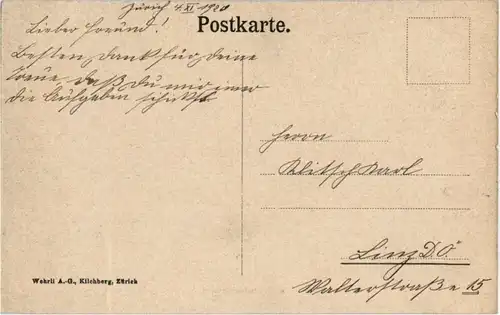 Zürich 4. XI 1920
Postkarte.
Lieber Freund!
Besten Dank für deine
Treue, daß Du mir immer
die Aufgaben schickst
Herrn
Klitsch Karl
Linz D.Ö.
Walterstraße 15
Wehrli A.-G., Kilchberg, Zürich